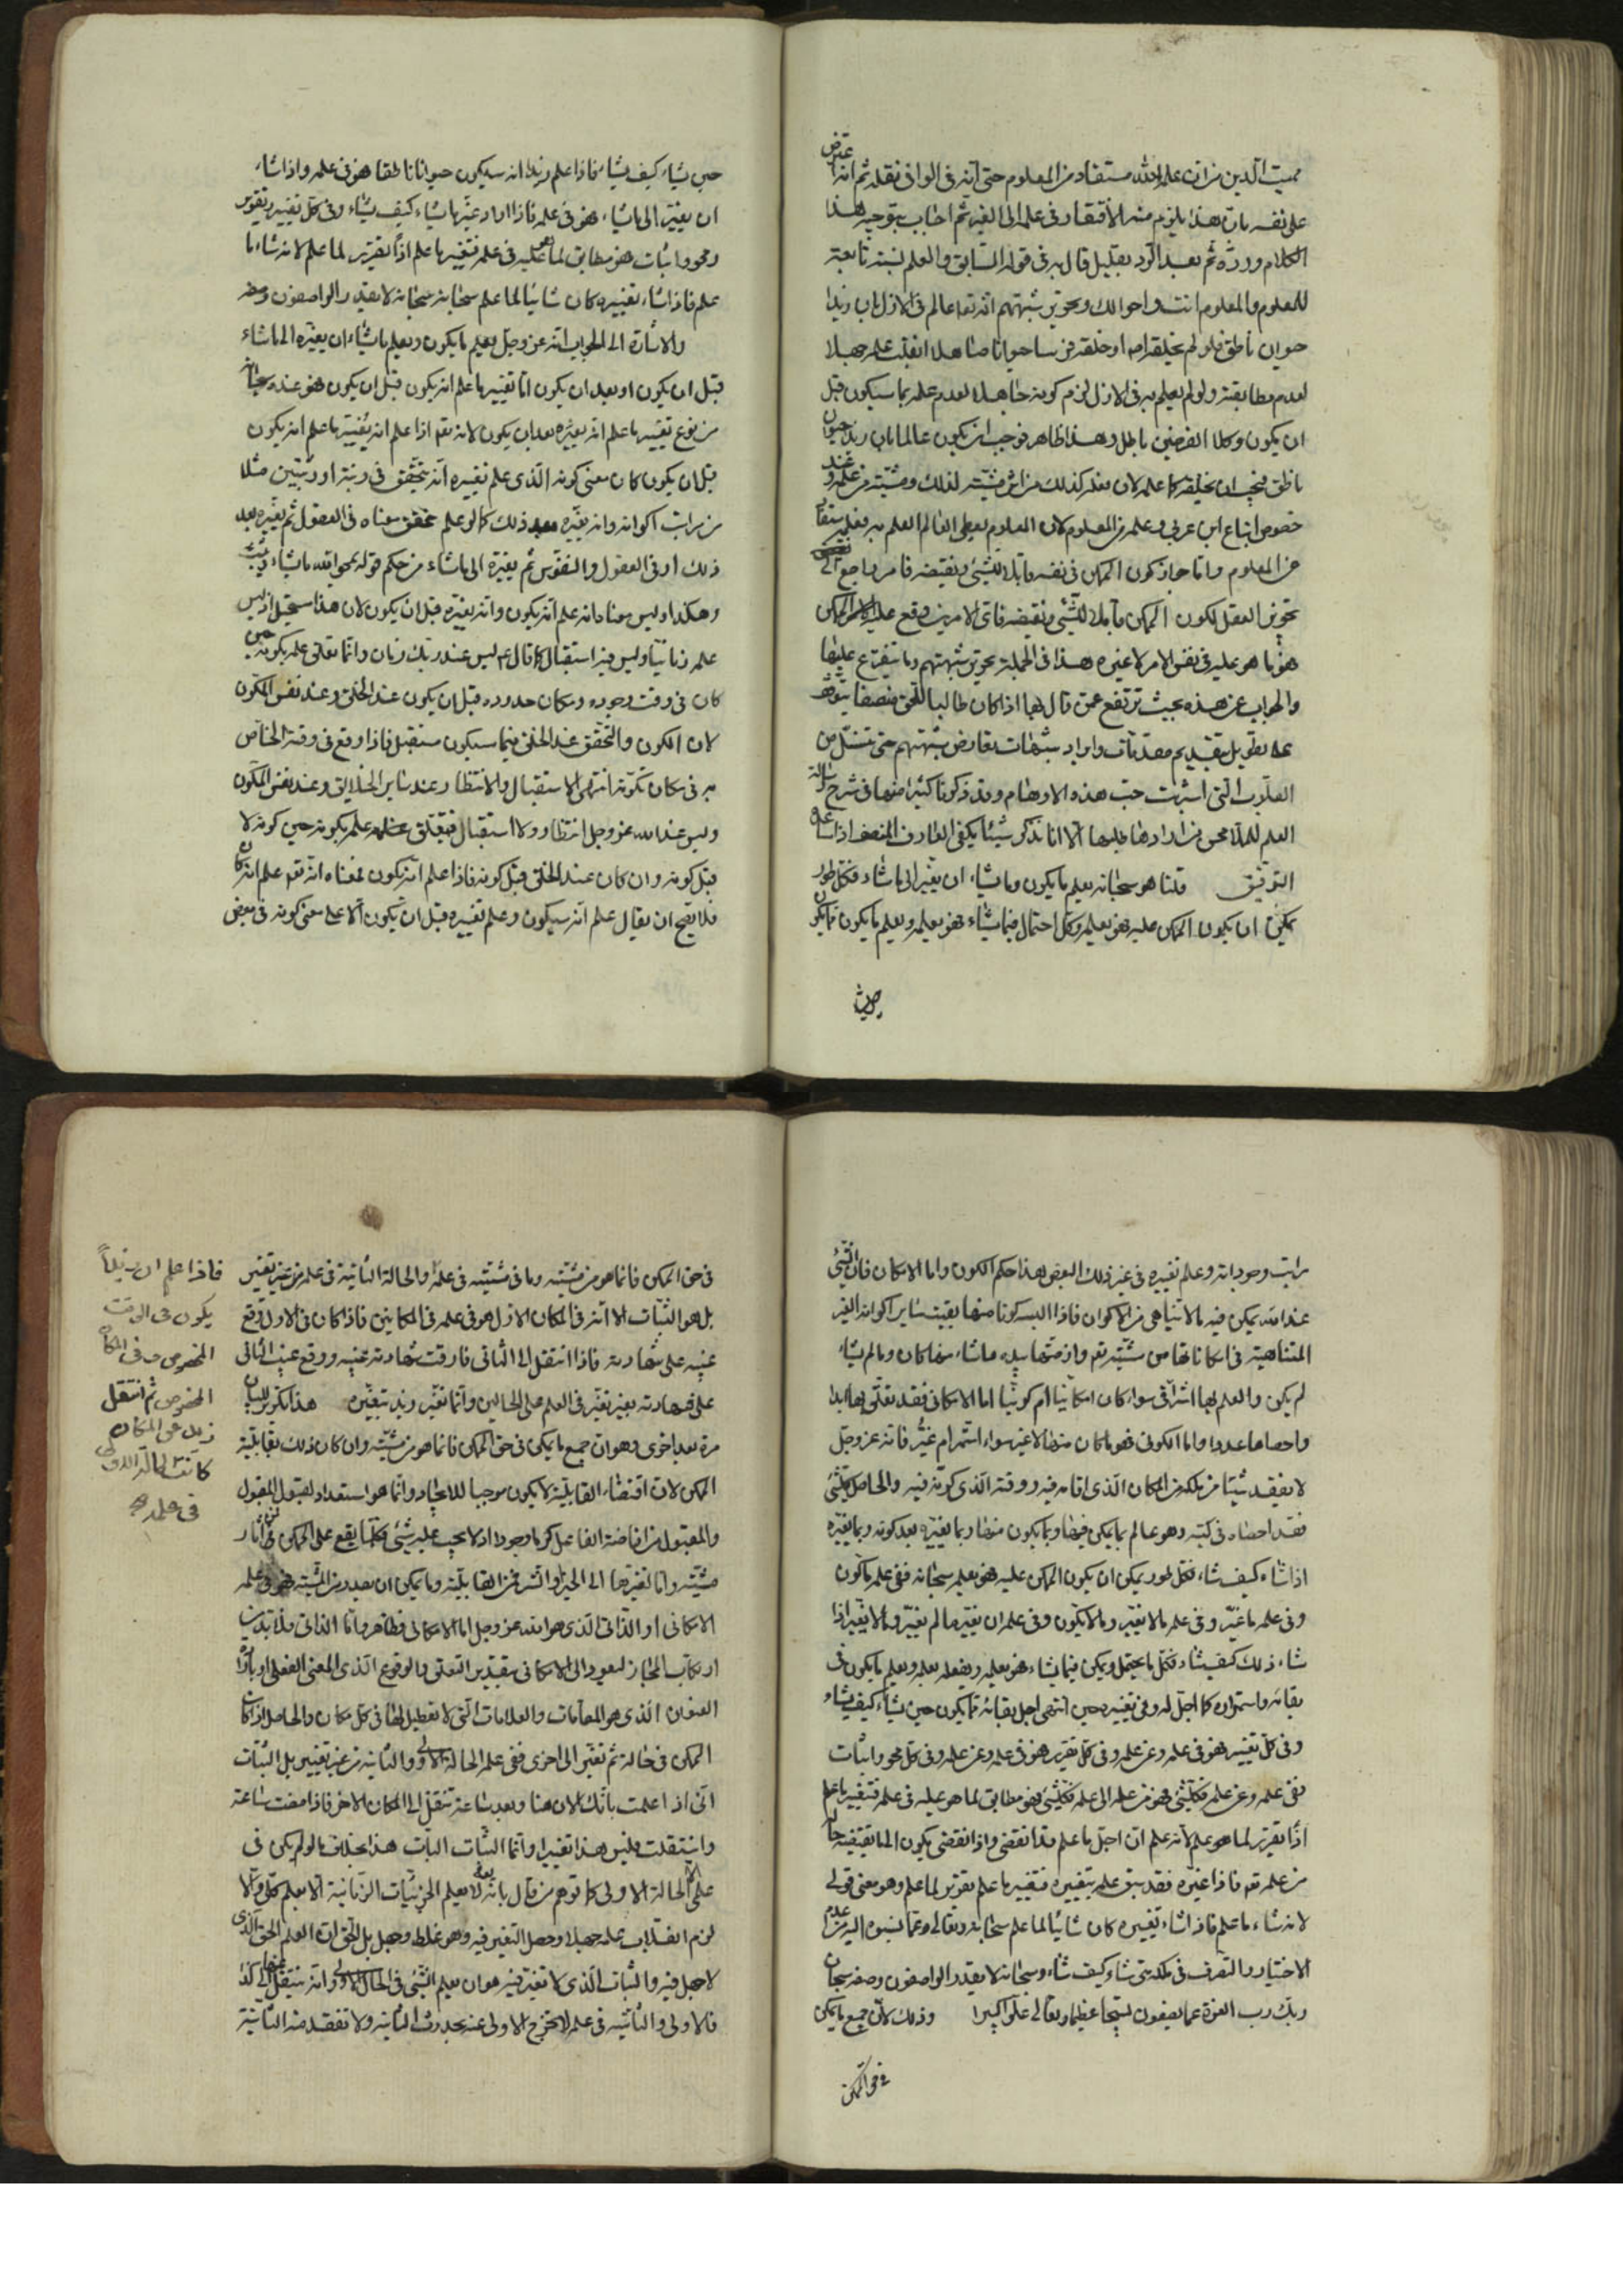 مميت الدين من ان علم الله مستفاد من المعلوم حتى انه فى الوافى نقله ثم انه اعترض
على نفسه بان هذا يلزم منه الافتقار فى علمه الى الغير ثم اجاب بتوجيه هذا
الكلام ورده ثم بعد الرد بقليل قال به فى قوله السابق والعلم نسبة تابعة
للمعلوم والمعلوم انت واحوالك وتحرير شبهتهم انه تعا عالم فى الازل بان زيدا
حيوان ناطق فلو لم يخلقه اصلا او خلقه فرسا حيوانا صاهلا انقلب علمه جهلا
لعدم مطابقته ولو لم يعلم به فى الازل لزم كونه جاهلا لعدم علمه بما سيكون قبل
ان يكون وكلا الفرضين باطل وهذا ظاهر فوجب ان يكون عالما بان زيدا حيوان
ناطق فيجب ان يخلقه كما علمه لان فعله كذلك من اثر مشيته لذلك ومشيته من علمه وعند
خصوص اتباع ابن عربى وعلمه من المعلوم لان المعلوم يعطى العالم العلم به فعلمه مستفاد
من المعلوم واما جواز كون الممكن فى نفسه قابلا للشئ ونقيضه فامر راجع الى
تجويز العقل لكون الممكن قابلا للشئ ونقيضه فاى الامرين وقع عليه الممكن
هو ما هو عليه فى نفس الامر لا غيره هذا فى الجملة تحرير شبهتهم وما يتفرع عليها
والجواب عن هذه بحيث ترتفع عمن قال بها اذا كان طالبا للحق منصفا يتوقف
على تطويل بتقديم مقدمات وايراد شبهات تعارض شبهتهم حتى تستل من
القلوب التى اشربت حب هذه الاوهام وقد ذكرنا كثيرا منها فى شرح رسالة
العلم للملا محسن من ارادها طلبها الا انا نذكر شيئا يكفى العارف المنصف اذا ساعده
التوفيق قلنا هو سبحانه يعلم ما يكون وما يشاء ان يغير الى ما شاء فكل طور
يمكن ان يكون الممكن عليه فهو يعلمه وكل احتمال فيما يشاء فهو يعلمه ويعلم ما يكون مما يكون
حين يشاء
حين يشاء كيف يشاء فاذا علم زيدا انه سيكون حيوانا ناطقا فهو فى علمه واذا شاء
ان يغيره الى ما شاء فهو فى علمه فاذا اراد غيرها يشاء كيف يشاء وفى كل تغيير وتقرير
ومحو واثبات فهو مطابق لما هو عليه فى علمه فتغيير ما علم اذا تقرير لما علم لانه شاء ما
علم فاذا شاء تغييره كان شائيا لما علم سبحانه سبحانه لا يقدر الواصفون وصفه
والاشارة الى الجواب انه عز وجل يعلم ما يكون ويعلم ما يشاء ان يغيره الى ما شاء
قبل ان يكون او بعد ان يكون اما تغيير ما علم انه يكون قبل ان يكون فهو عنده سبحانه
من نوع تغيير ما علم انه يغيره بعد ان يكون لانه تعا اذا علم انه يغير ما علم انه يكون
قبل ان يكون كان معنى كونه الذى علم تغييره انه يتحقق فى رتبة او رتبتين مثلا
من مراتب اكوانه وانه يغيره بعد ذلك كما لو علم تحقق معناه فى العقول ثم يغيره بعد
ذلك او فى العقول والنفوس ثم يغيره الى ما شاء من حكم قوله يمحو الله ما يشاء ويثبت
وهكذا وليس معناه انه علم انه يكون وانه يغيره قبل ان يكون لان هذا مستحيل اذ ليس
علمه زمانيا وليس فيه استقبال كما قال ع ليس عند ربك زمان وانما تعلق علمه بكونه حين
كان فى وقت وجوده ومكان حدوده قبل ان يكون عند الخلق وعند نفس المكون
لان الكون والتحقق عند الخلق فيما سيكون مستقبل فاذا وقع فى وقته الخاص
به فى مكان تكونه انتهى الاستقبال والانتظار عند سائر الخلايق وعند نفس المكون
وليس عند الله عز وجل انتظار ولا استقبال فيتعلق علمه بكونه حين كونه لا
قبل كونه وان كان عند الخلق قبل كونه فاذا علم انه يكون فمعناه انه تعا علم انه كان
فلا يصح ان يقال علم انه سيكون وعلم تغييره قبل ان يكون الا على معنى كونه فى بعض
مراتب وجوداته وعلم تغييره فى غير ذلك البعض هذا حكم الكون واما الامكان فان الشئ
عند الله يمكن فيه ما لا يتناهى من الاكوان فاذا البسه كونا منها بقيت سائر اكوانه الغير
المتناهية فى امكاناتها من مشيته تعا وازمتها بيده ما شاء منها كان وما لم يشاء
لم يكن والعلم بها اشراقى سواء كان امكانيا ام كونيا اما الامكانى فقد تعلق بها ابدا
واحصاها عددا واما الكونى فهو ما كان منها لا غير سواء استمر ام غير فانه عز وجل
لا يفقد شيئا من ملكه من المكان الذى اقامه فيه ووقته الذى كونه فيه والحاصل كل شئ
فقد احصاه فى كتبه وهو عالم بما يمكن فيها وبما يكون منها وبما يغيره بعد كونه وبما يغيره
اذا شاء كيف شاء فكل طور يمكن ان يكون الممكن عليه فهو يعلمه سبحانه ففى علمه ما كون
وفى علمه ما غير وفى علمه ما لا يغير وما لا يكون وفى علمه ان يغير ما لم يغير وما لا يغير اذا
شاء ذلك كيف شاء فكل ما يحتمل ويمكن فيما يشاء فهو يعلمه ويفعله بعلمه ويعلم ما يكون فى
بقائه واستمراره كما اجل له وفى تغييره حين انتهى اجل بقائه مما يكون حين يشاء كيف يشاء
وفى كل تغيير فهو فى علمه وعن علمه وفى كل تقرير فهو فى علمه وعن علمه وفى كل محو واثبات
ففى علمه وعن علمه فكل شئ فهو من علمه الى علمه فكل شئ فهو مطابق لما هو عليه فى علمه فتغيير ما علم
اذا تقرير لما هو علم لانه علم ان اجل ما علم قد انقضى واذا انقضى يكون الى ما يقتضيه حاله
من علمه تعا فاذا غيره فقد سبق علمه بتغييره فتغيير ما علم تقرير لما علم وهو معنى قولى
لانه شاء ما علم فاذا شاء تغييره كان شائيا لما علم سبحانه وتعالى عما ينسبوه اليه من عدم
الاختيار والتصرف فى ملكه متى شاء وكيف شاء وسبحانه لا يقدر الواصفون وصفه سبحان
ربك رب العزة عما يصفون تسبيحا عظيما وتعالى علوا كبيرا وذلك لان جميع ما يمكن
فى حق الممكن
فى حق الممكن فانما هو من مشيته وما فى مشيته فى علمه والحالة الثانية فى علمه من غير تغيير
بل هو الثبات الا انه فى المكان الاول هو فى علمه فى المكانين فاذا كان فى الاول وقع
غيبه على شهادته فاذا انتقل الى الثانى فارقت شهادته غيبه ووقع غيب الثانى
على شهادته بغير تغير فى العلم على الحالين وانما تغير زيد بتغيره هذا تكرير للبيان
مرة بعد اخرى وهو ان جميع ما يمكن فى حق الممكن فانما هو من مشيته وان كان ذلك بقابلية
الممكن لان اقتضاء القابلية لا يكون موجبا للايجاد وانما هو استعداد لقبول المقبول
والمقبول من افاضة الفاعل كرما وجودا اذ لا يجب عليه شئ فكلما يقع على الممكن فمن اثار
مشيته وانما تغيرها الى الخير او الشر من القابلية وما يمكن ان يصدر من المشية فهو فى علمه
الامكانى او الذاتى الذى هو الله عز وجل اما الامكانى فظاهر واما الذاتى فلا بد من
ارتكاب المجاز ليعود الى الامكانى بتقدير التعلق والوقوع الذى المعنى الفعلى او بارادة
العنوان الذى هو المقامات والعلامات التى لا تعطيل لها فى كل مكان والحاصل اذا كان
الممكن فى حالة ثم تغير الى اخرى ففى علمه الحالة الاولى والثانية من غير تغيير بل الثبات
انى اذا علمت بانك الان هنا وبعد ساعة تنتقل الى المكان الاخر فاذا مضت ساعة
وانتقلت فليس هذا تغييرا وانما الثبات البات هذا بخلاف ما لو لم يكن فى
علمه الا الحالة الاولى كما توهم من قال بانه تعا لا يعلم الجزئيات الزمانية الا بعلم كلى والا
لزم انقلاب علمه جهلا وحصل التغير فيه وهو غلط وجهل بل الحق ان العلم الحق الذى
لا جهل فيه والثبات الذى لا تغير فيه هو ان يعلم الشئ فى الحال الاولى وانه ينتقل منها الى كذا
فالاولى والثانية فى علمه لا تخرج الاولى عنه بحدوث الثانية ولا تفقد منه الثانية
فاذا علم ان زيداً
يكون فى الوقت
المخصوص فى المكان
المخصوص ثم انتقل
زيد عن المكان
كانت الحالة الاولى
فى علمه